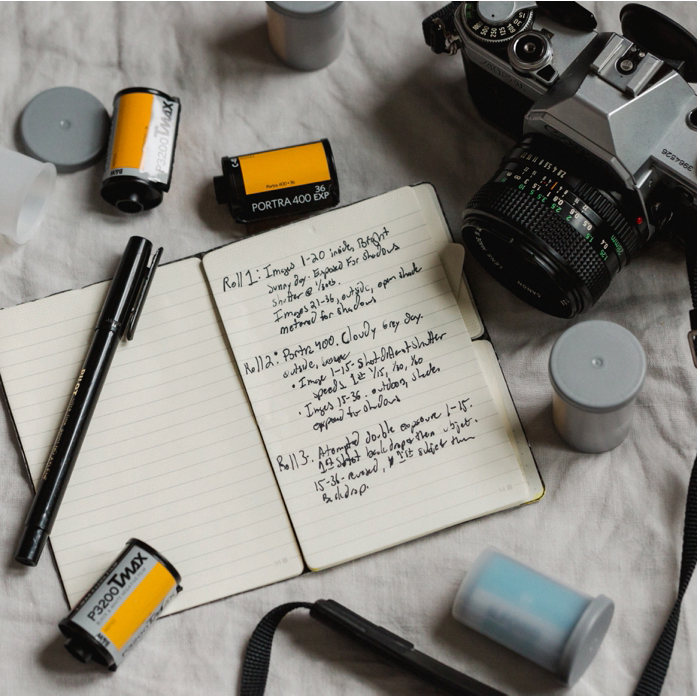 P3200 TMAX
PORTRA 400 36 EXP
Portra 400 • 36
CANON
3964526
PILOT
Roll 1: Images 1-20 inside, Bright
sunny day. Exposed For shadows
shutter @
Images 21-36, outside, open shade
metered for shadows
Roll 2: Portra 400. Cloudy Grey day.
outside,
• Image 1-15 - Shot different shutter
speeds. 1st 1/15, 1/30, 1/60
• Images 15-36 - outdoors, shades
exposed for shadows
Roll 3. Attempted double exposure 1-15.
1st shot backdrop then object.
15-36 - reversed, 1st subject then
Backdrop.
P3200 TMAX